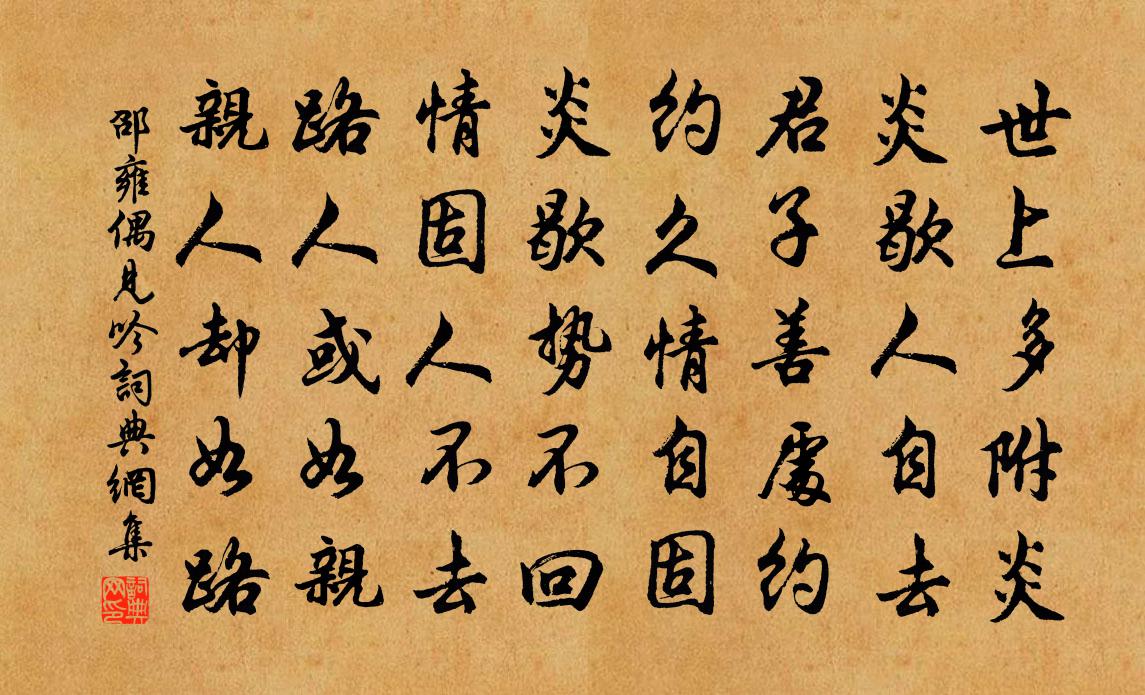 世上多附炎
炎歇人自去
君子善處約
約久情自固
炎歇勢不回
情固人不去
路人或如親
親人却如路
邵雍偶見吟詞典網集
詞典网印